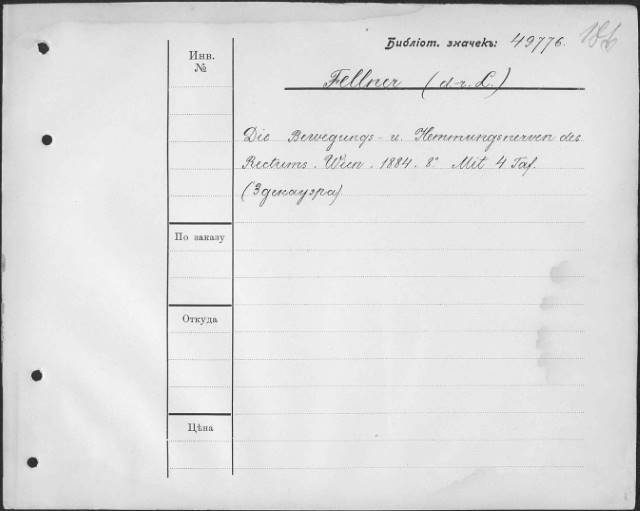 Библіот. значекъ: 49776.
Инв.
№
Fellner (d-r. L.)
Die Bewegungs- u. Hemmungsnerven des
Rectums. Wien. 1884. 8° Mit 4 Taf.
(Здекауэра)
По заказу
Откуда
Цѣна